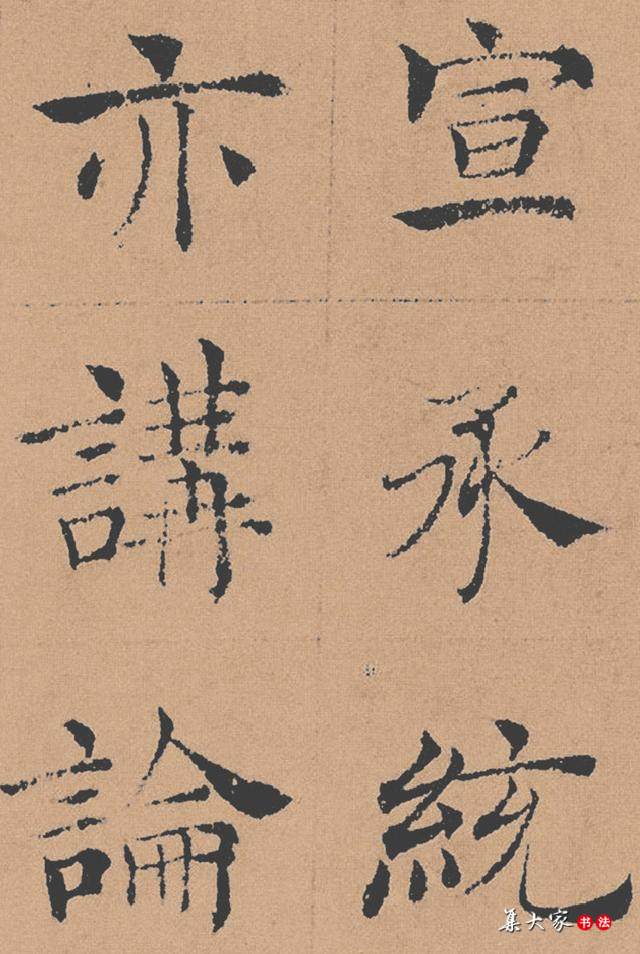 宣承統
亦講論
集大家书法